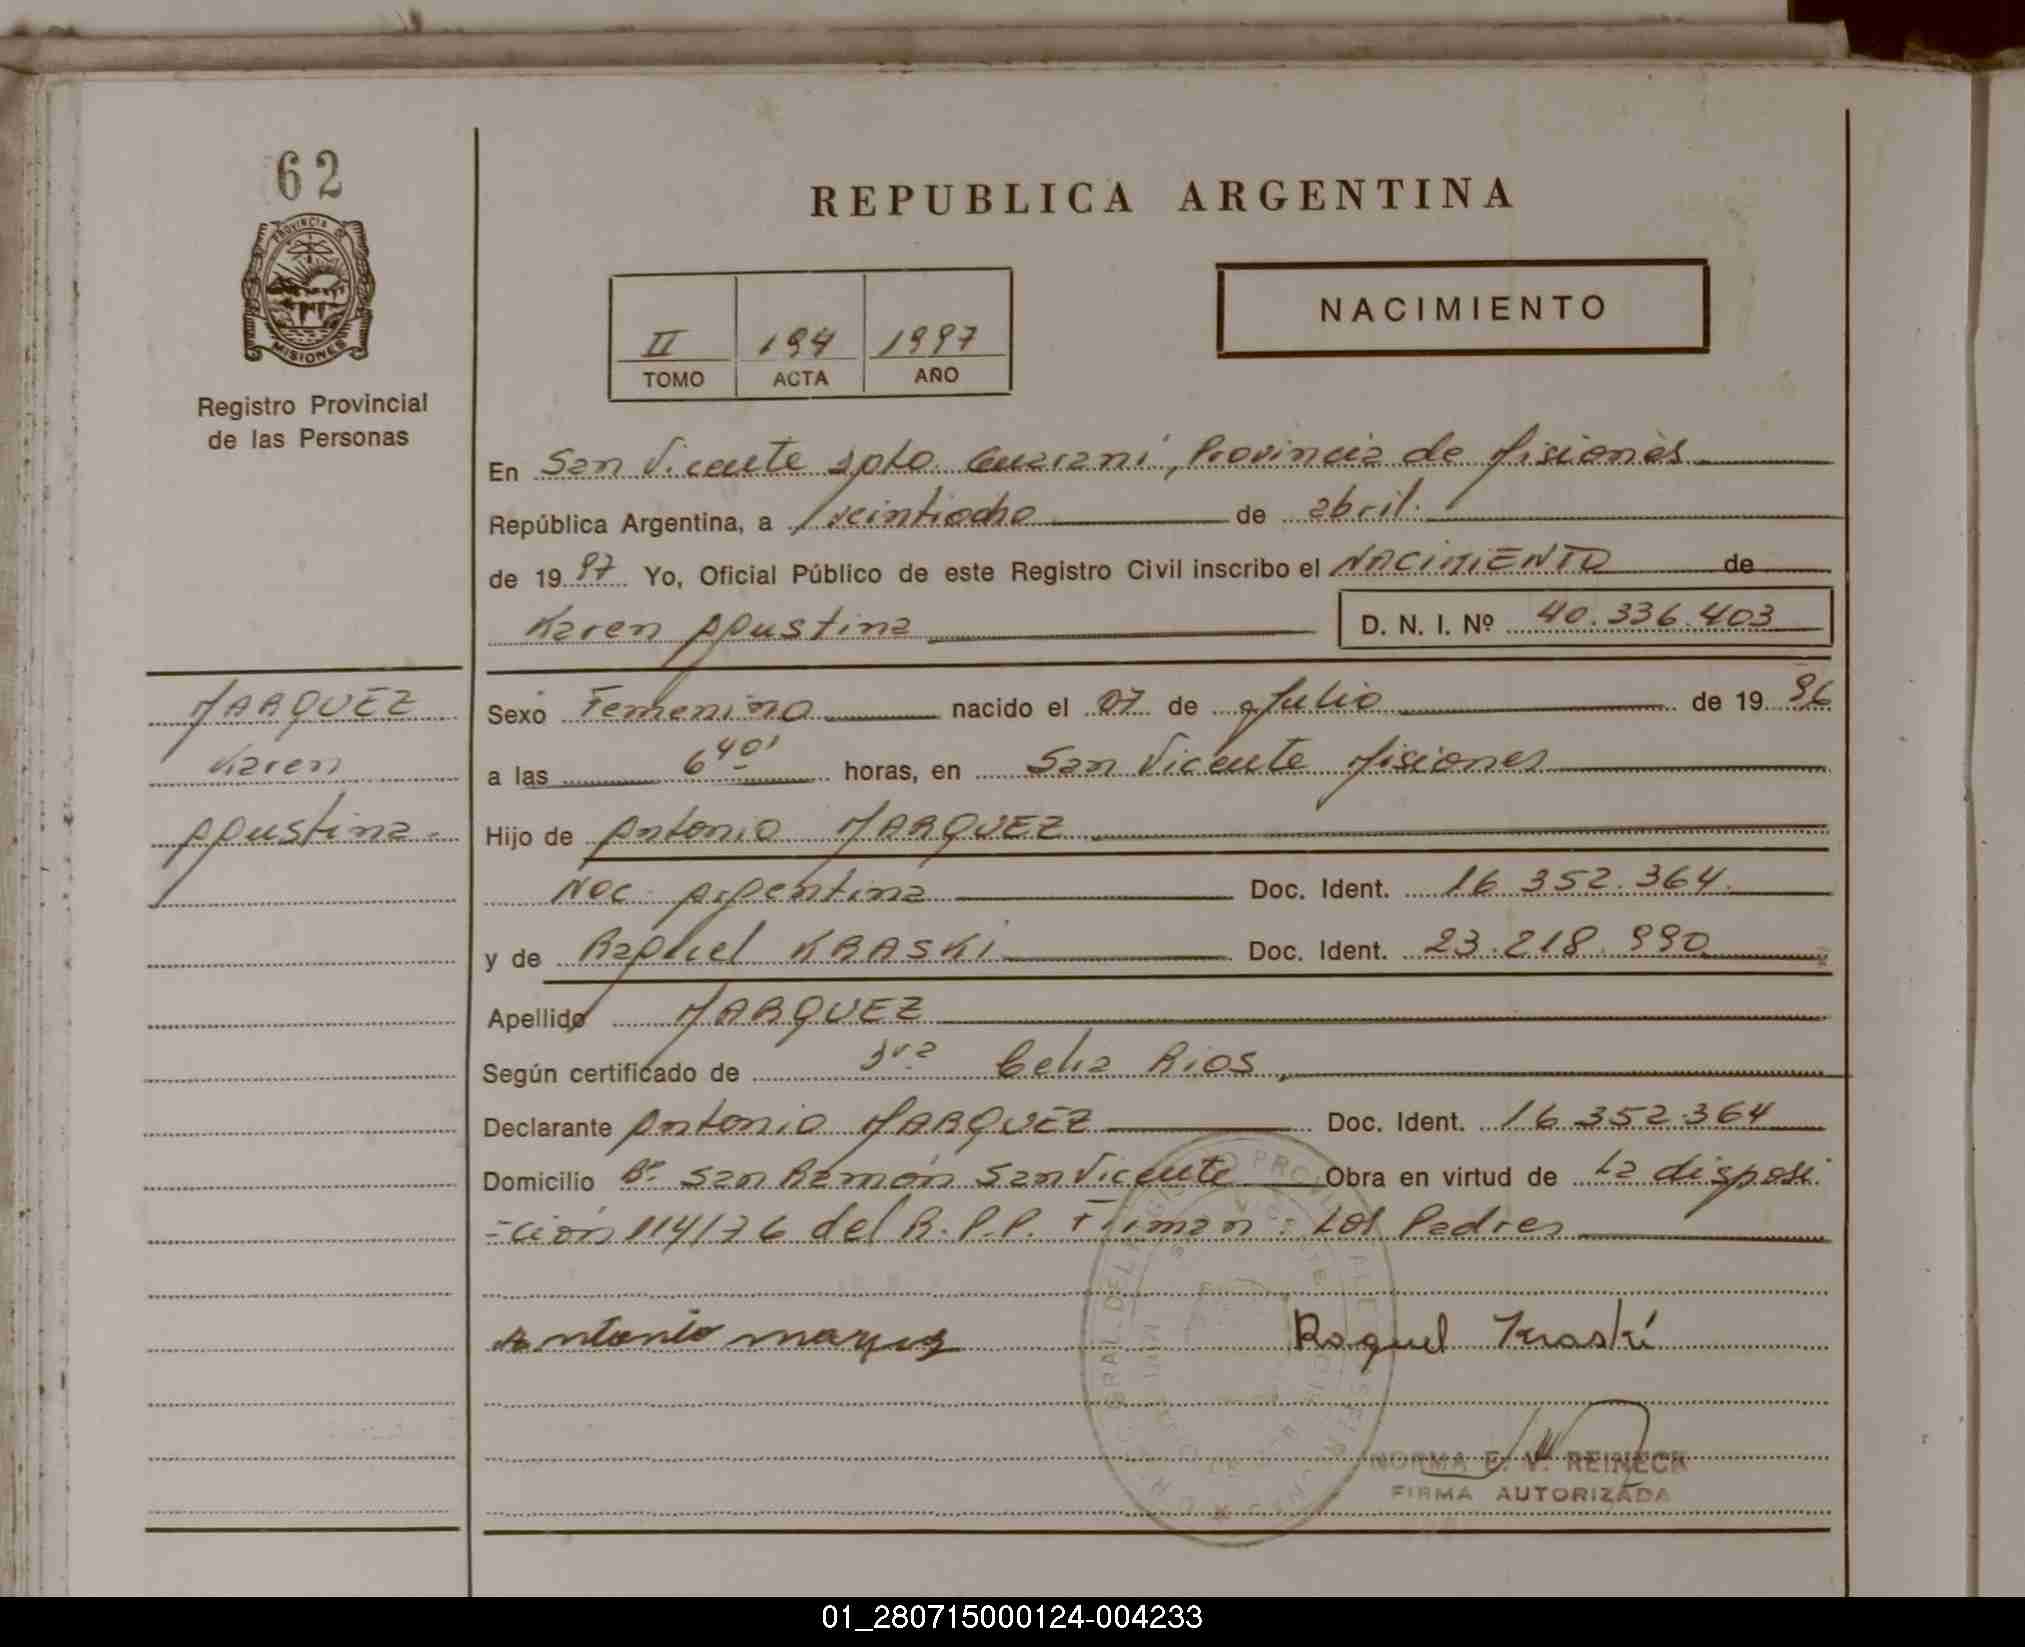 62
PROVINCIA DE
MISIONES
Registro Provincial
de las Personas
REPUBLICA ARGENTINA
II 194 1997
TOMO ACTA AÑO
NACIMIENTO
En San Vicente Dpto Guarani, Provincia de Misiones
República Argentina, a veintiocho de abril.
de 1997 Yo, Oficial Público de este Registro Civil inscribo el NACIMIENTO de
Karen Agustina D. N. I. Nº 40.336.403
MARQUEZ
Karen
Agustina.
Sexo Femenino nacido el 07 de Julio de 1996
a las 6 40' horas, en San Vicente Misiones
Hijo de Antonio MARQUEZ
Nac. Argentina Doc. Ident. 16.352.364.
y de Raquel KRASKI Doc. Ident. 23.218.990
Apellido MARQUEZ
Según certificado de Dra Celia Rios
Declarante Antonio MARQUEZ Doc. Ident. 16.352.364
Domicilio Bº San Ramón San Vicente Obra en virtud de La disposi
=ción 114/76 del R.P.P. Firman: Los Padres
Antonio marquez Raquel Kraski
NORMA E. V. REINECK
FIRMA AUTORIZADA
01_280715000124-004233